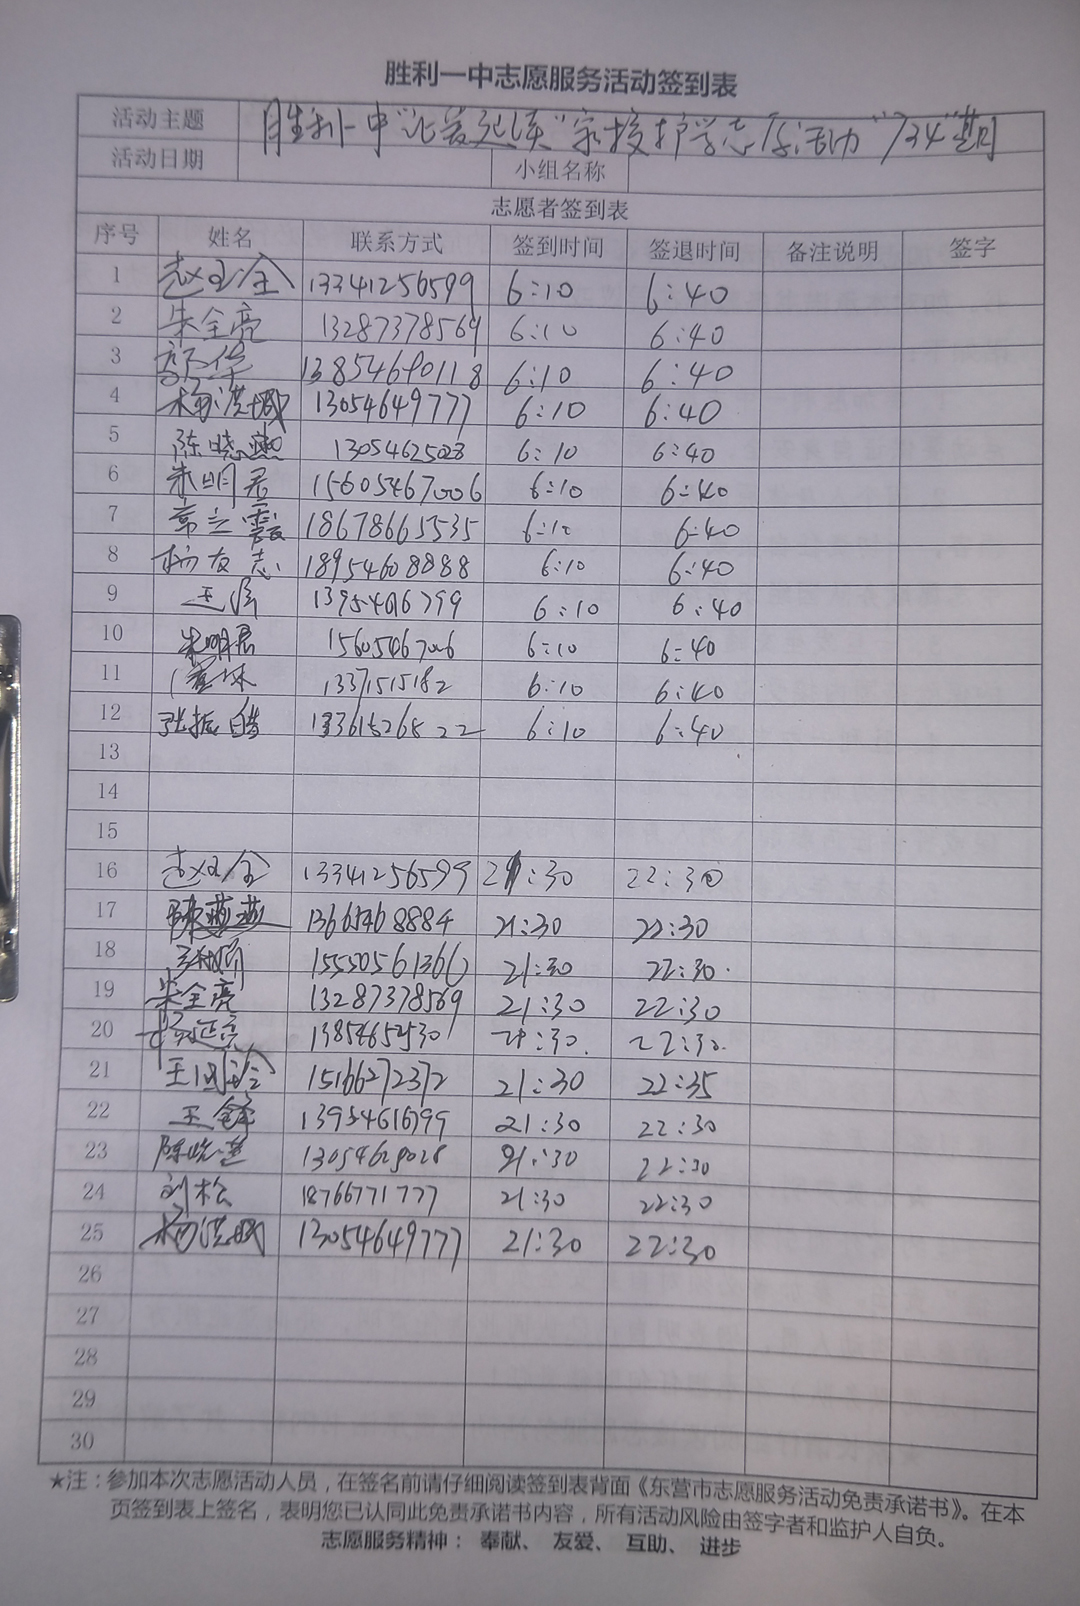 胜利一中志愿服务活动签到表
活动主题 胜利一中"让爱起误"家校护学志愿活动"734"期
活动日期 小组名称
志愿者签到表
序号 姓名 联系方式 签到时间 签退时间 备注说明 签字
1 赵玉金 13341256599 6:10 6:40
2 朱全亮 13287378569 6:10 6:40
3 13854690118 6:10 6:40
4 杨洪斌 13054649777 6:10 6:40
5 陈晓燕 13054625028 6:10 6:40
6 朱明君 15605467006 6:10 6:40
7 常立霞 18678665535 6:10 6:40
8 杨友志 18954608888 6:10 6:40
9 王 6:10 6:40
10 朱明君 6:10 6:40
11 13371515182 6:10 6:40
12 张振 6:10 6:40
13
14
15
16 赵玉金 13341256599 21:30 22:30
17 陈燕燕 21:30 22:30
18 15550561360 21:30 22:30
19 朱全亮 13287378569 21:30 22:30
20 21:30 22:30
21 王国玲 15166272372 21:30 22:35
22 王锋 21:30 22:30
23 陈晓燕 21:30 22:30
24 刘松 18766771777 21:30 22:30
25 杨洪斌 13054649777 21:30 22:30
26
27
28
29
30
★注：参加本次志愿活动人员，在签名前请仔细阅读签到表背面《东营市志愿服务活动免责承诺书》。在本
页签到表上签名，表明您已认同此免责承诺书内容，所有活动风险由签字者和监护人自负。
志愿服务精神： 奉献、 友爱、 互助、 进步